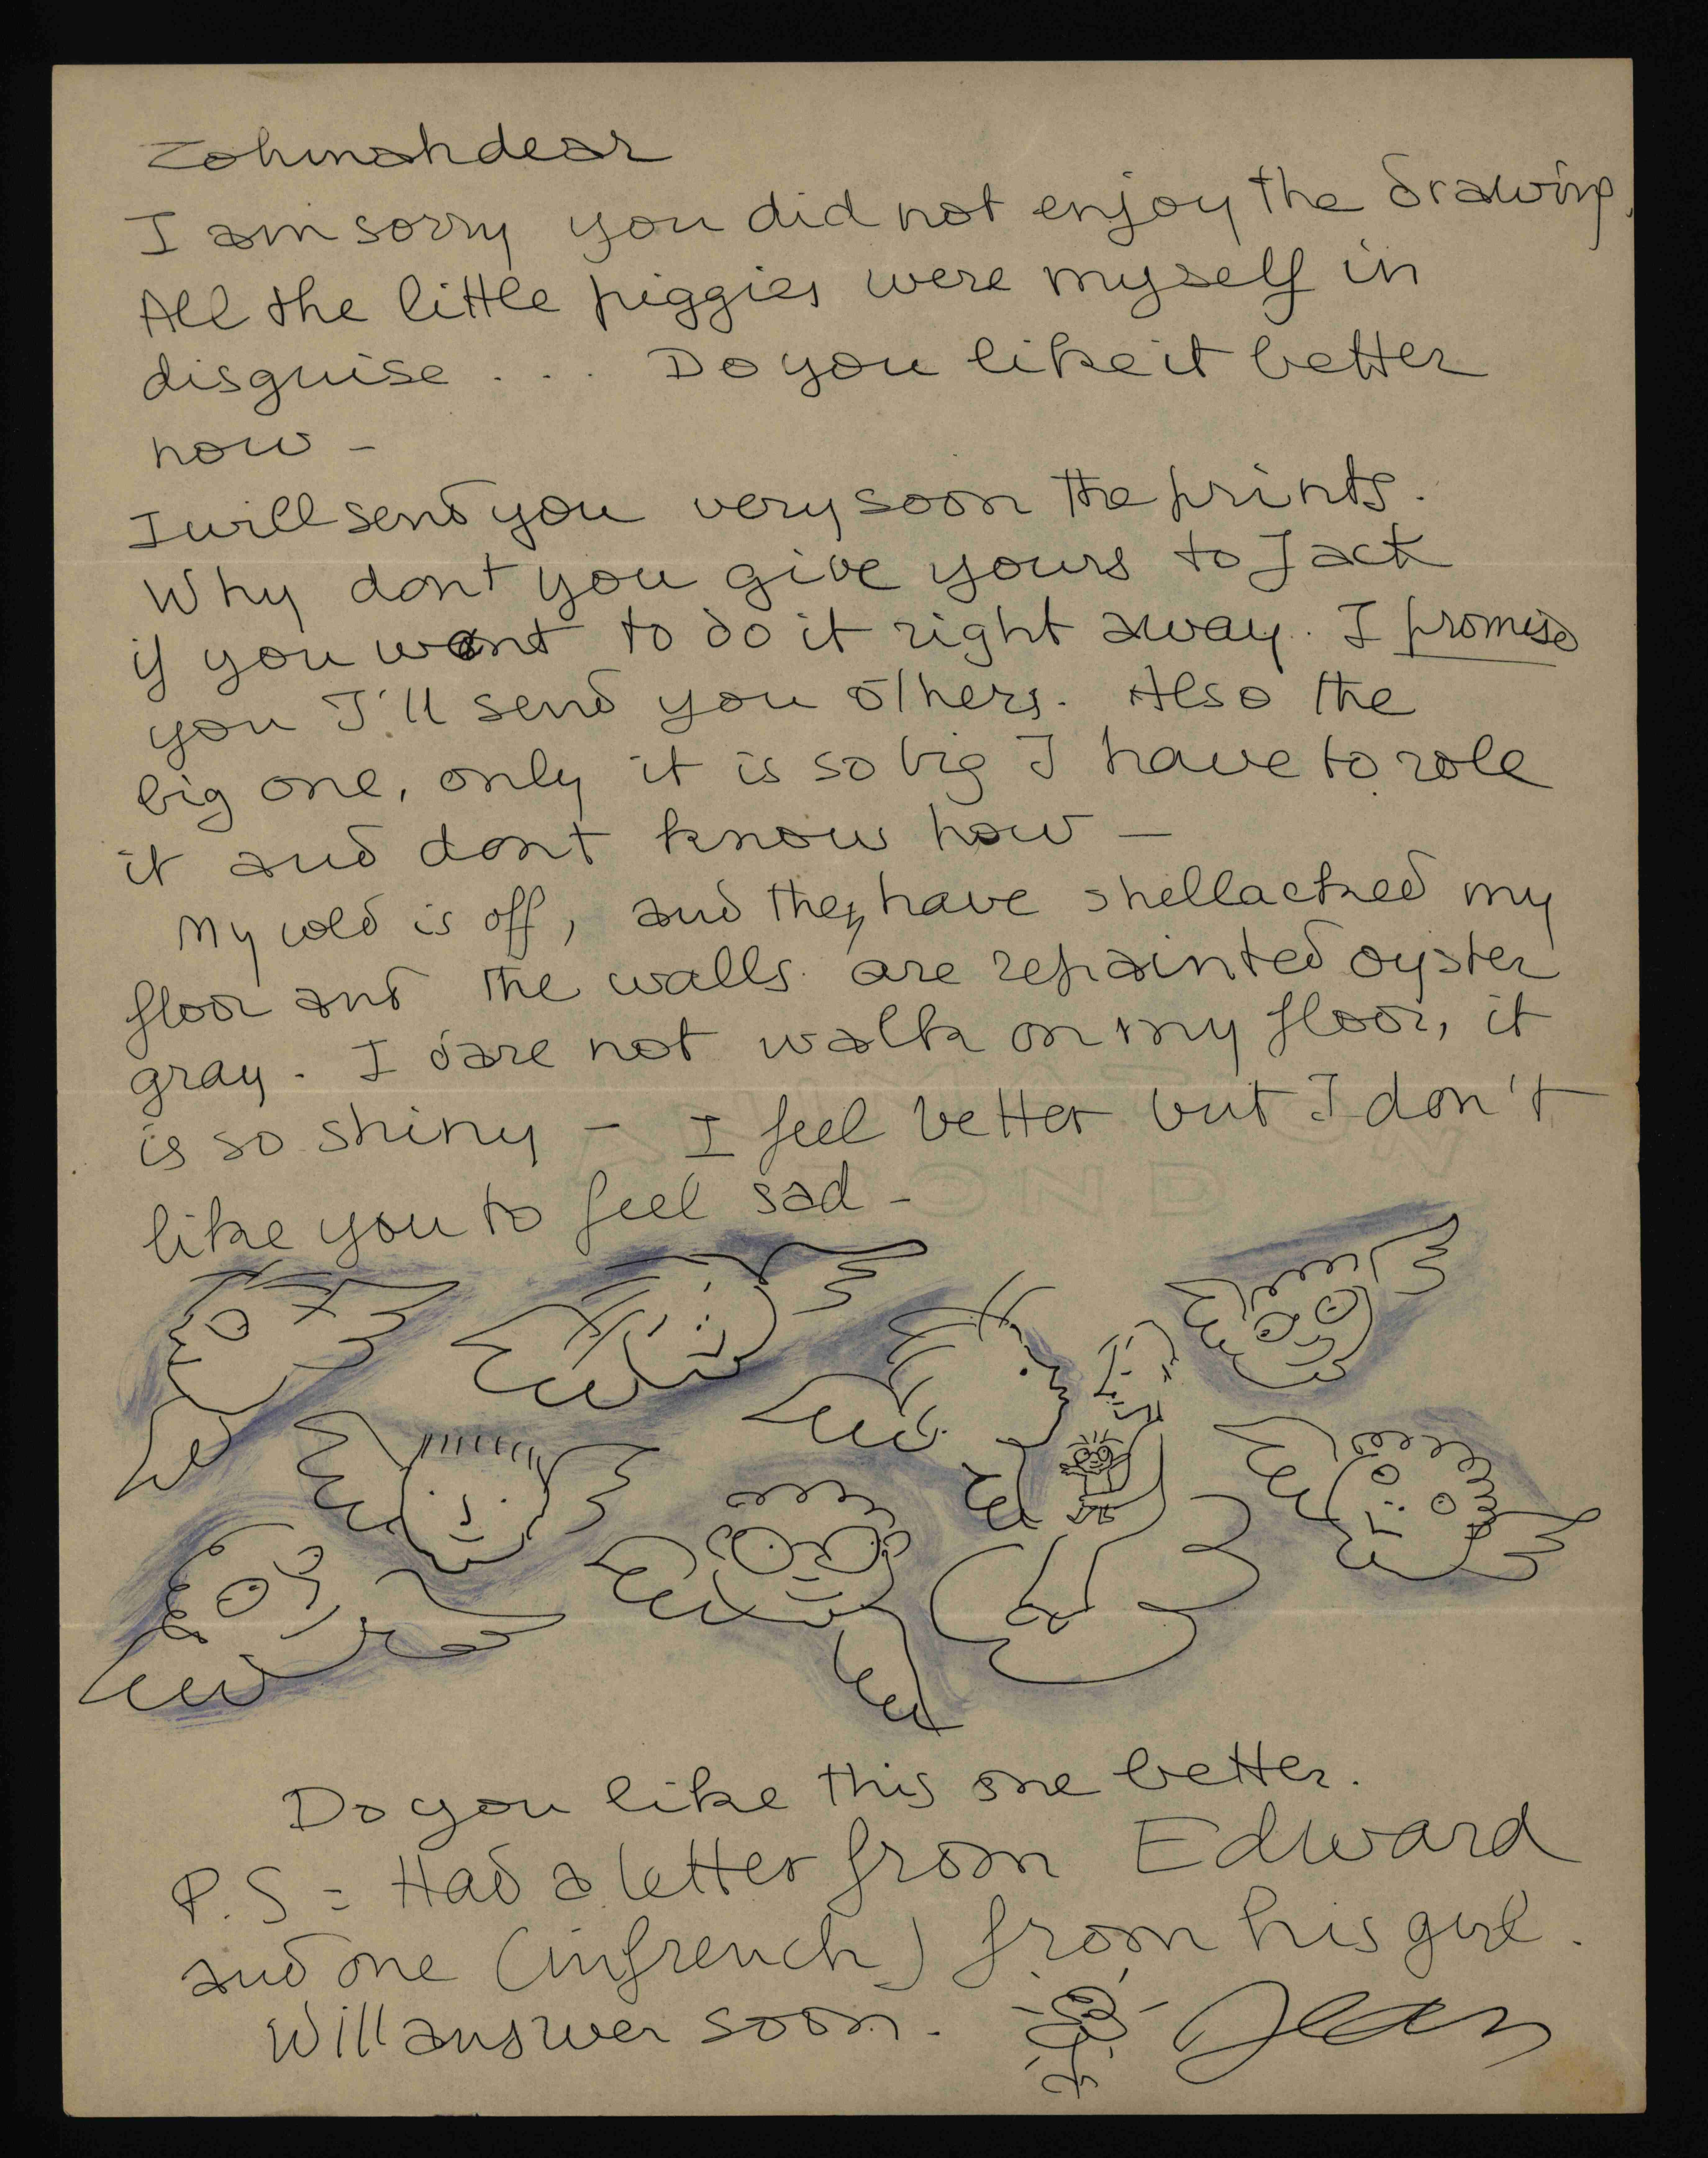 Zohmah dear
I am sorry you did not enjoy the drawing.
All the little piggies were myself in
disguise . . . Do you like it better
now –
I will send you very soon the prints.
Why dont you give yours to Jack
if you want to do it right away. I promise
you I'll send you others. Also the
big one, only it is so big I have to role
it and dont know how –
My cold is off, and they have shellacked my
floor and the walls are repainted oyster
gray. I dare not walk on my floor, it
is so shiny – I feel better but I don't
like you to feel sad –
Do you like this one better.
P.S = Had a letter from Edward
and one (in french) from his girl.
Will answer soon.
Jean